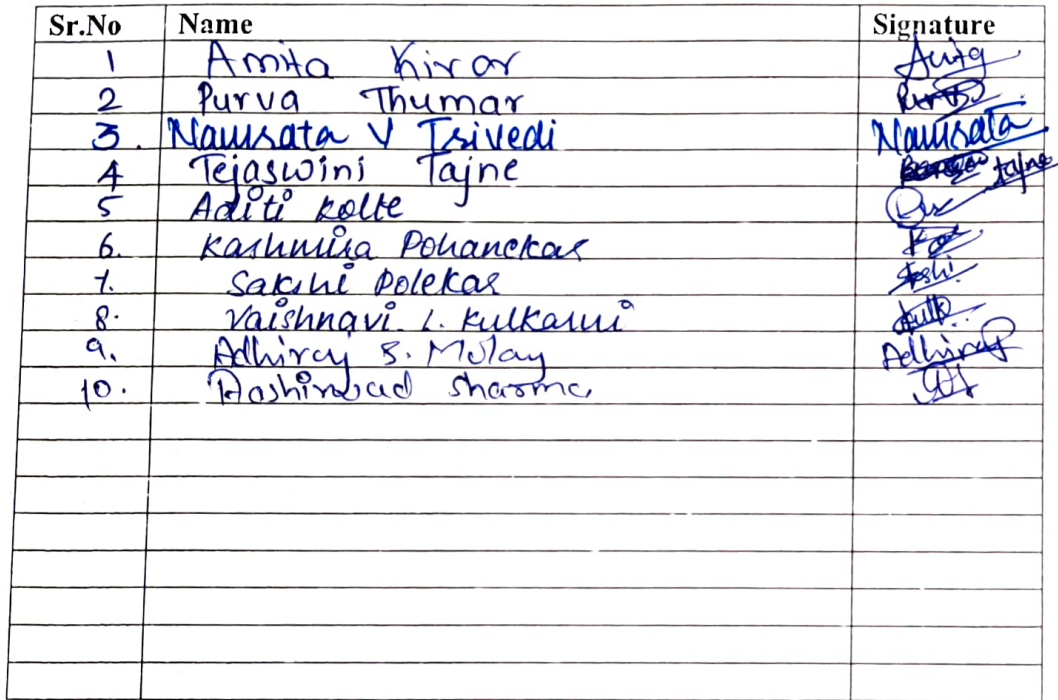 Sr.No Name Signature
1 Amita Kirar
2 Purva Thumar
3. Namrata V Trivedi Namrata
4 Tejaswini Tajne Tajne
5 Aditi Kolte
6. Kashmira Pohanekar
7. Sakshi Polekar
8. Vaishnavi. L. Kulkarni
9. Adhiraj S. Mulay Adhiraj
10. Aashirwad Sharma